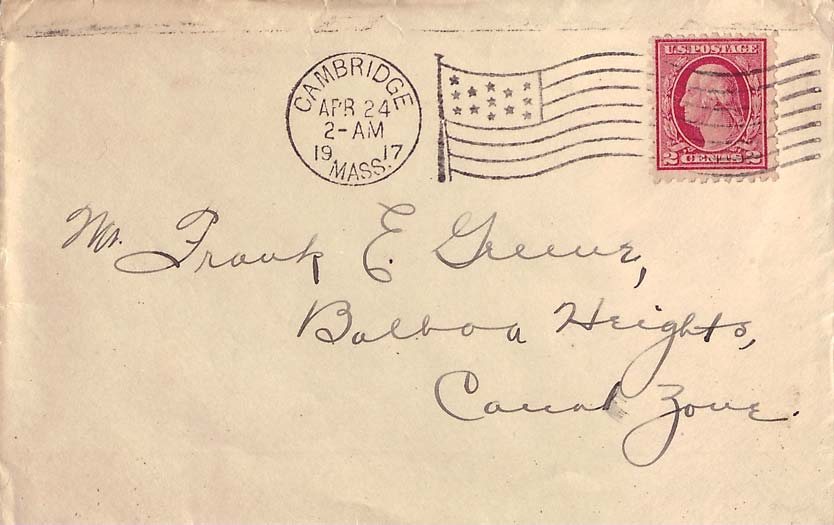 CAMBRIDGE
APR 24
2-AM
1917
MASS.
U.S. POSTAGE
2 CENTS 2
Mr. Frank E. Greene,
Balboa Heights,
Canal Zone.